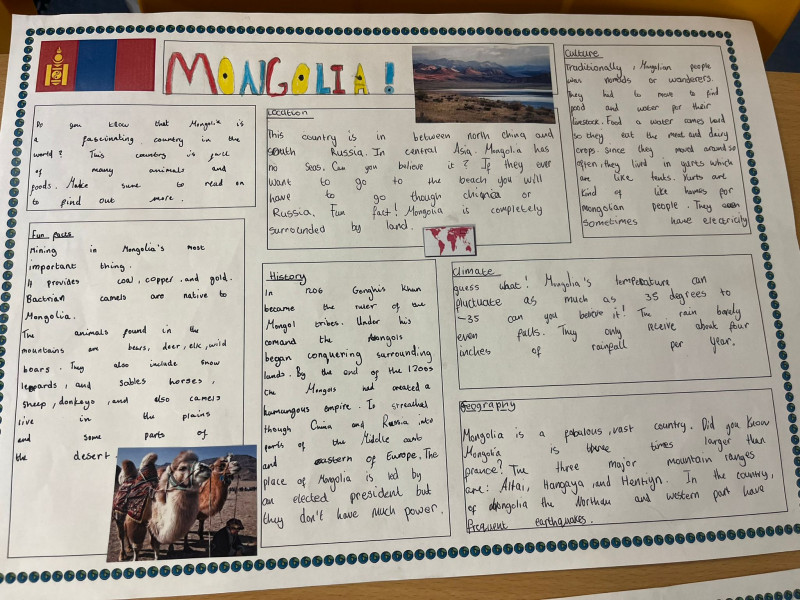 MONGOLIA!
Do you know that Mongolia is
a fascinating country in the
world? This country is full
of many animals and
foods. Make sure to read on
to find out more.
Location
This country is in between north china and
south Russia. In central Asia. Mongolia has
no seas. Can you believe it? If they ever
want to go to the beach you will
have to go though china or
Russia. Fun fact! Mongolia is completely
surrounded by land.
Culture
Traditionally, Mongolian people
was nomads or wanderers.
They had to move to find
food and water for their
livestock. Food a water comes hard
so they eat the meat and dairy
crops. Since they moved around so
often, they lived in yurts which
are like tents. Yurts are
kind of like homes for
mongolian people. They
sometimes have electricity
Fun facts
Mining in Mongolia's most
important thing.
It provides coal, copper, and gold.
Bactrian camels are native to
Mongolia.
The animals found in the
mountains are bears, deer, elk, wild
boars. They also include snow
leopards, and sables horses,
sheep, donkeys, and also camels
live in the plains
and some parts of
the desert.
History
In 1206 Genghis Khan
became the ruler of the
Mongol tribes. Under his
comand the Mongols
began conquering surrounding
lands. By the end of the 1200s
the Mongols had created a
humungous empire. It streached
though China and Russia into
parts of the Middle east
and eastern of Europe. The
place of Mongolia is led by
an elected president but
they don't have much power.
Climate
guess what! Mongolia's temperature can
fluctuate as much as 35 degrees to
-35 can you believe it! The rain barely
even falls. They only receive about four
inches of rainfall per year.
Geography
Mongolia is a fabulous, vast country. Did you know
Mongolia is three times larger than
france? The three major mountain ranges
are: Altai, Hangaya, and Hentiyn. In the country,
of Mongolia the Northan and western part have
frequent earthquakes.